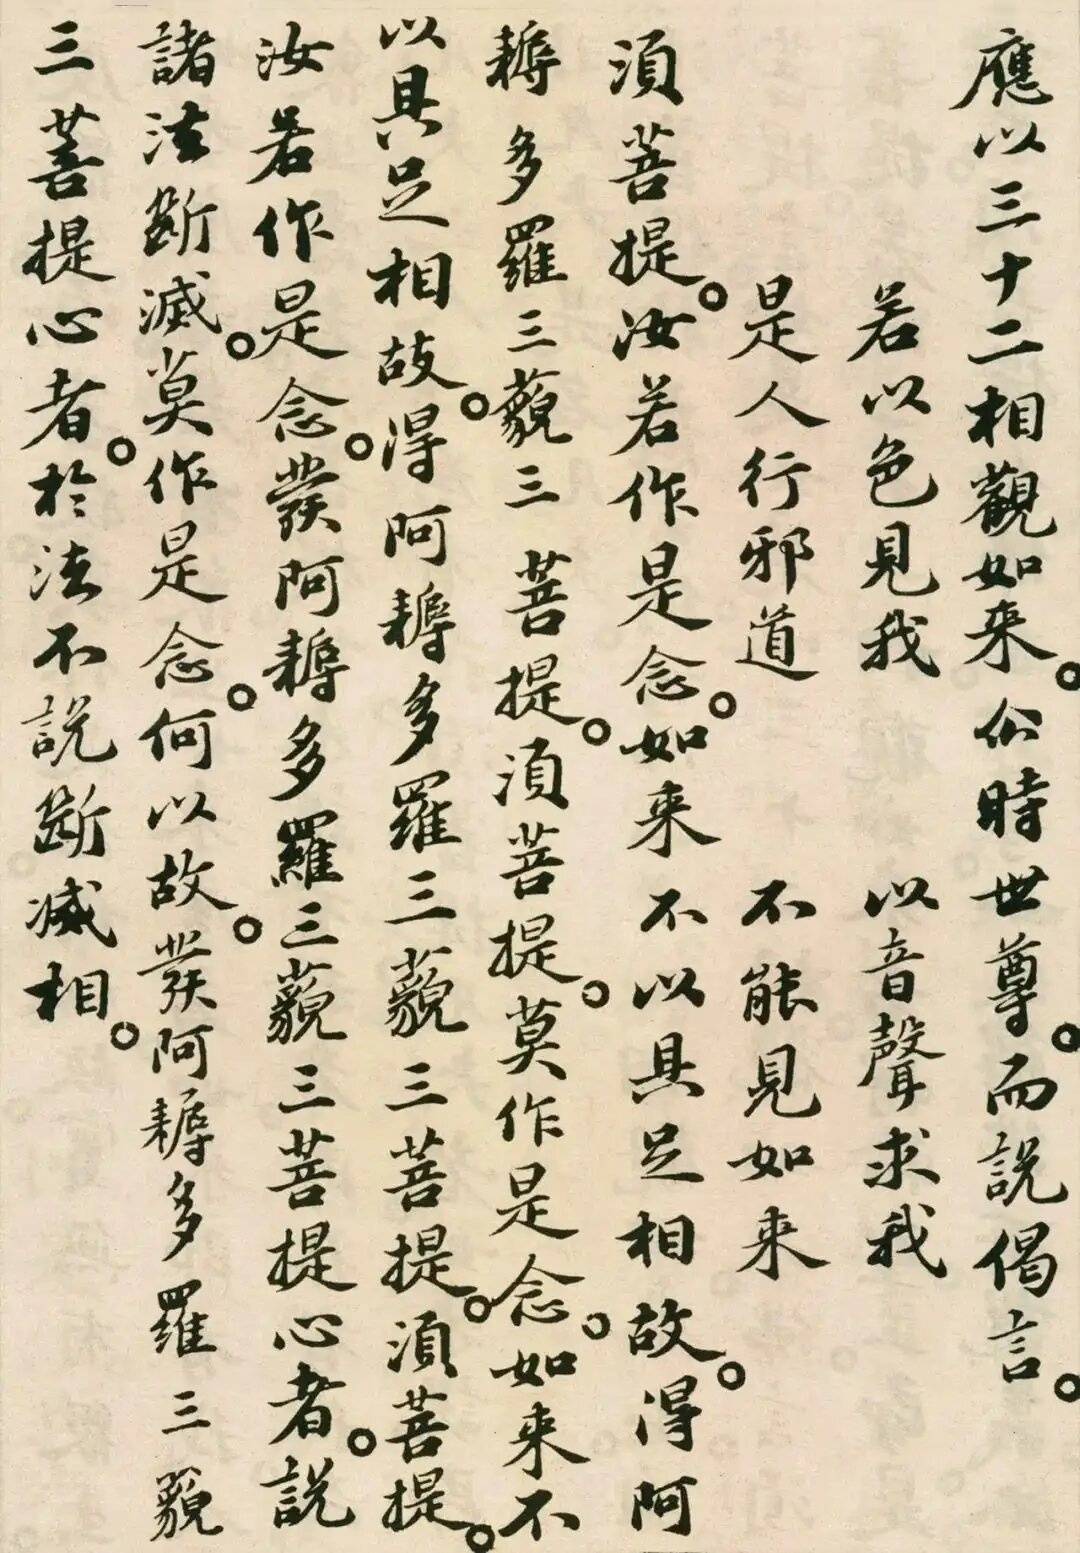 應以三十二相觀如来。尒時世尊。而說偈言。
若以色見我　以音聲求我
是人行邪道　不能見如来
須菩提。汝若作是念。如来不以具足相故。得阿
耨多羅三藐三菩提。須菩提。莫作是念。如来不
以具足相故。得阿耨多羅三藐三菩提。須菩提。
汝若作是念。發阿耨多羅三藐三菩提心者。說
諸法斷滅。莫作是念。何以故。發阿耨多羅三藐
三菩提心者。於法不說斷滅相。